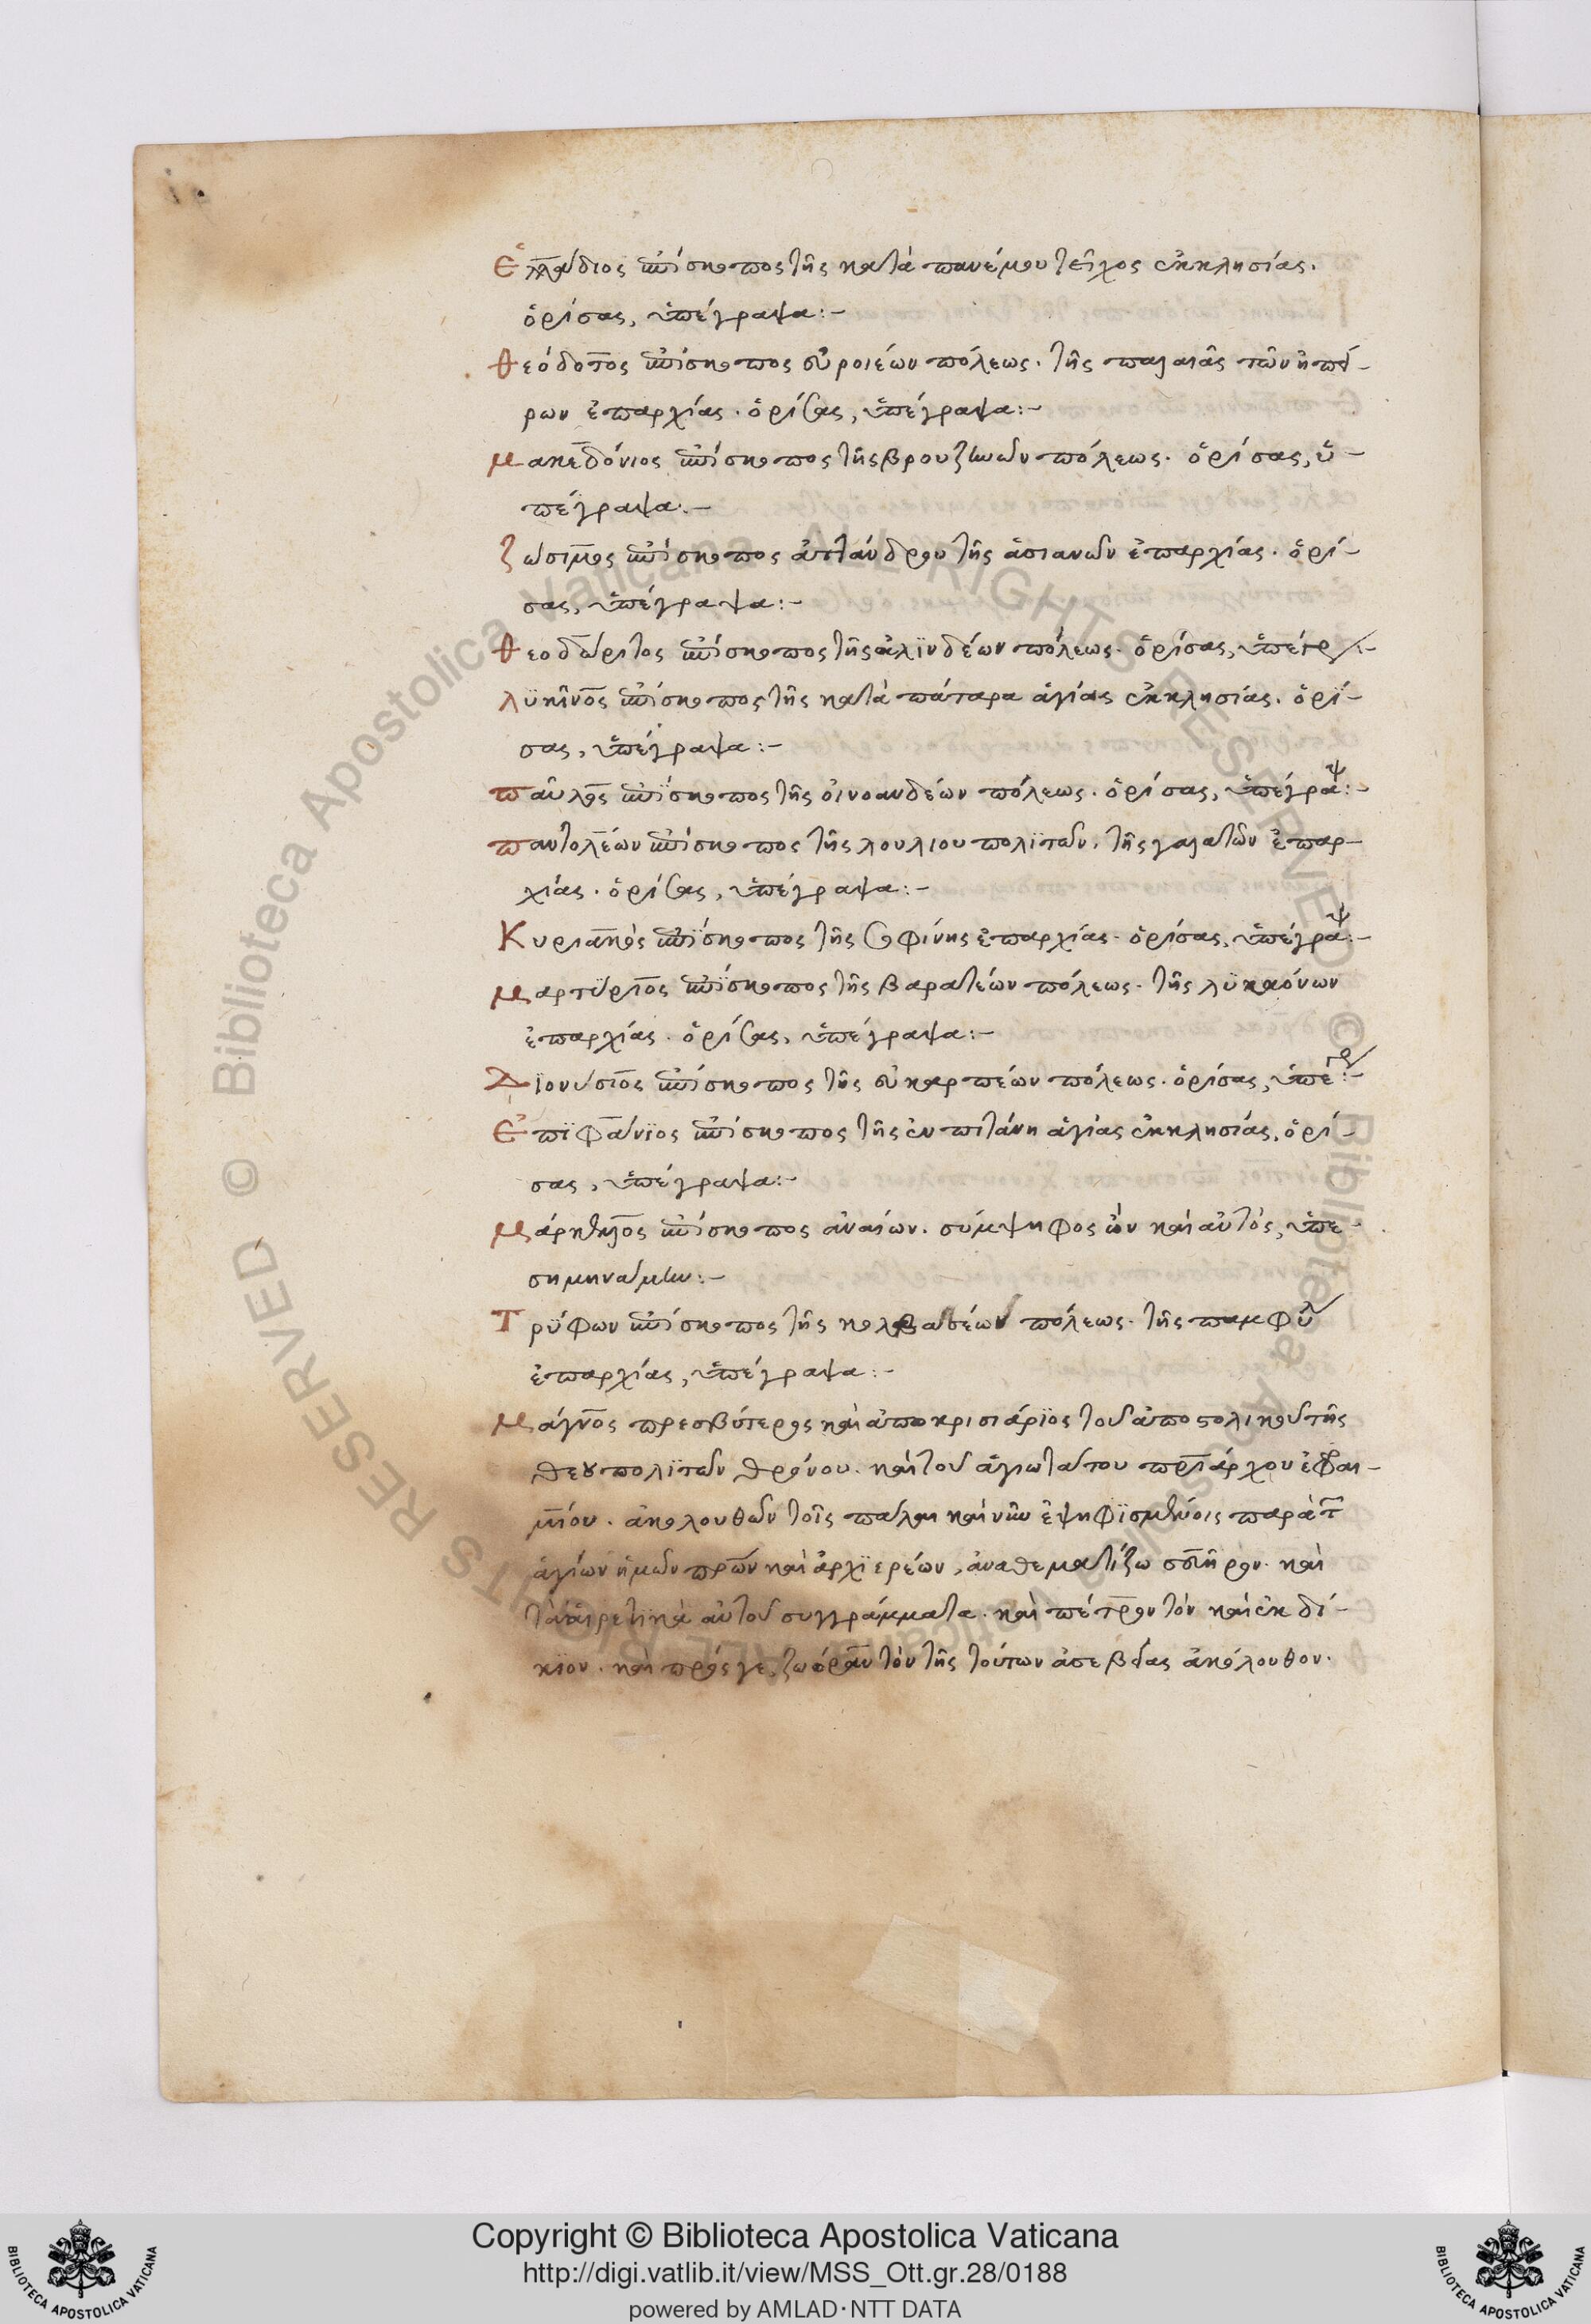 Ἑλλάδιος ἐπίσκοπος τῆς κατὰ πανέμου τεῖχος ἐκκλησίας.
ὁρίσας, ὑπέγραψα:-
θεόδοτος ἐπίσκοπος πόλεως. τῆς παλαιᾶς τῶν ἠπεί-
ρων ἐπαρχίας. ὁρίσας, ὑπέγραψα:-
μακεδόνιος ἐπίσκοπος τῆς βρουζηνῶν πόλεως. ὁρίσας, ὑ-
πέγραψα:-
ζώσιμος ἐπίσκοπος ἀντάνδρου τῆς ἀσιανῶν ἐπαρχίας. ὁρί-
σας, ὑπέγραψα:-
θεοδώριτος ἐπίσκοπος τῆς ἀλϊνδέων πόλεως. ὁρίσας, ὑπέγρ:-
λϋκῖνος ἐπίσκοπος τῆς κατὰ πάταρα ἁγίας ἐκκλησίας. ὁρί-
σας, ὑπέγραψα:-
παῦλος ἐπίσκοπος τῆς οἰνοανδέων πόλεως. ὁρίσας, ὑπέγραψ:-
παντολέων ἐπίσκοπος τῆς λουλιουπολϊτῶν, τῆς γαλατῶν ἐπαρ-
χίας. ὁρίσας, ὑπέγραψα:-
Κυριακὸς ἐπίσκοπος τῆς σοφίνης ἐπαρχίας. ὁρίσας, ὑπέγραψ:-
μαρτύριος ἐπίσκοπος τῆς βαρατέων πόλεως. τῆς λϋκαόνων
ἐπαρχίας. ὁρίσας, ὑπέγραψα:-
Διονύσιος ἐπίσκοπος τῆς εὐκαρπέων πόλεως. ὁρίσας, ὑπέγρ:-
Ἐπϊφάνϊος ἐπίσκοπος τῆς ἐν πιτάνη ἁγίας ἐκκλησίας, ὁρί-
σας, ὑπέγραψα:-
μάρκελλος ἐπίσκοπος ἀναίων. σύμψηφος ὢν καὶ αὐτὸς, ὑπε-
σημηνάμην:-
Τρύφων ἐπίσκοπος τῆς κολβασέων πόλεως. τῆς παμφύλ
ἐπαρχίας, ὑπέγραψα:-
μάγνος πρεσβύτερος καὶ ἀποκρισιάρϊος τοῦ ἀποστολικοῦ τῆς
θεουπολϊτῶν θρόνου. καὶ τοῦ ἁγιωτάτου πριάρχου ἐφραι-
μίου. ἀκολουθῶν τοῖς πάλαι καὶ νῦν ἐψηφϊσμένοις παρὰ τ
ἁγίων ἡμῶν πρων καὶ ἀρχϊερέων, ἀναθεματίζω σευῆρον. καὶ
τὰ αἱρετικὰ αὐτοῦ συγγράμματα. καὶ πέτρον τὸν καὶ ἐκδί-
κϊον. καὶ πρός γε, ζωόραν τὸν τῆς τούτων ἀσεβείας ἀκόλουθον.
Copyright © Biblioteca Apostolica Vaticana
http://digi.vatlib.it/view/MSS_Ott.gr.28/0188
powered by AMLAD·NTT DATA